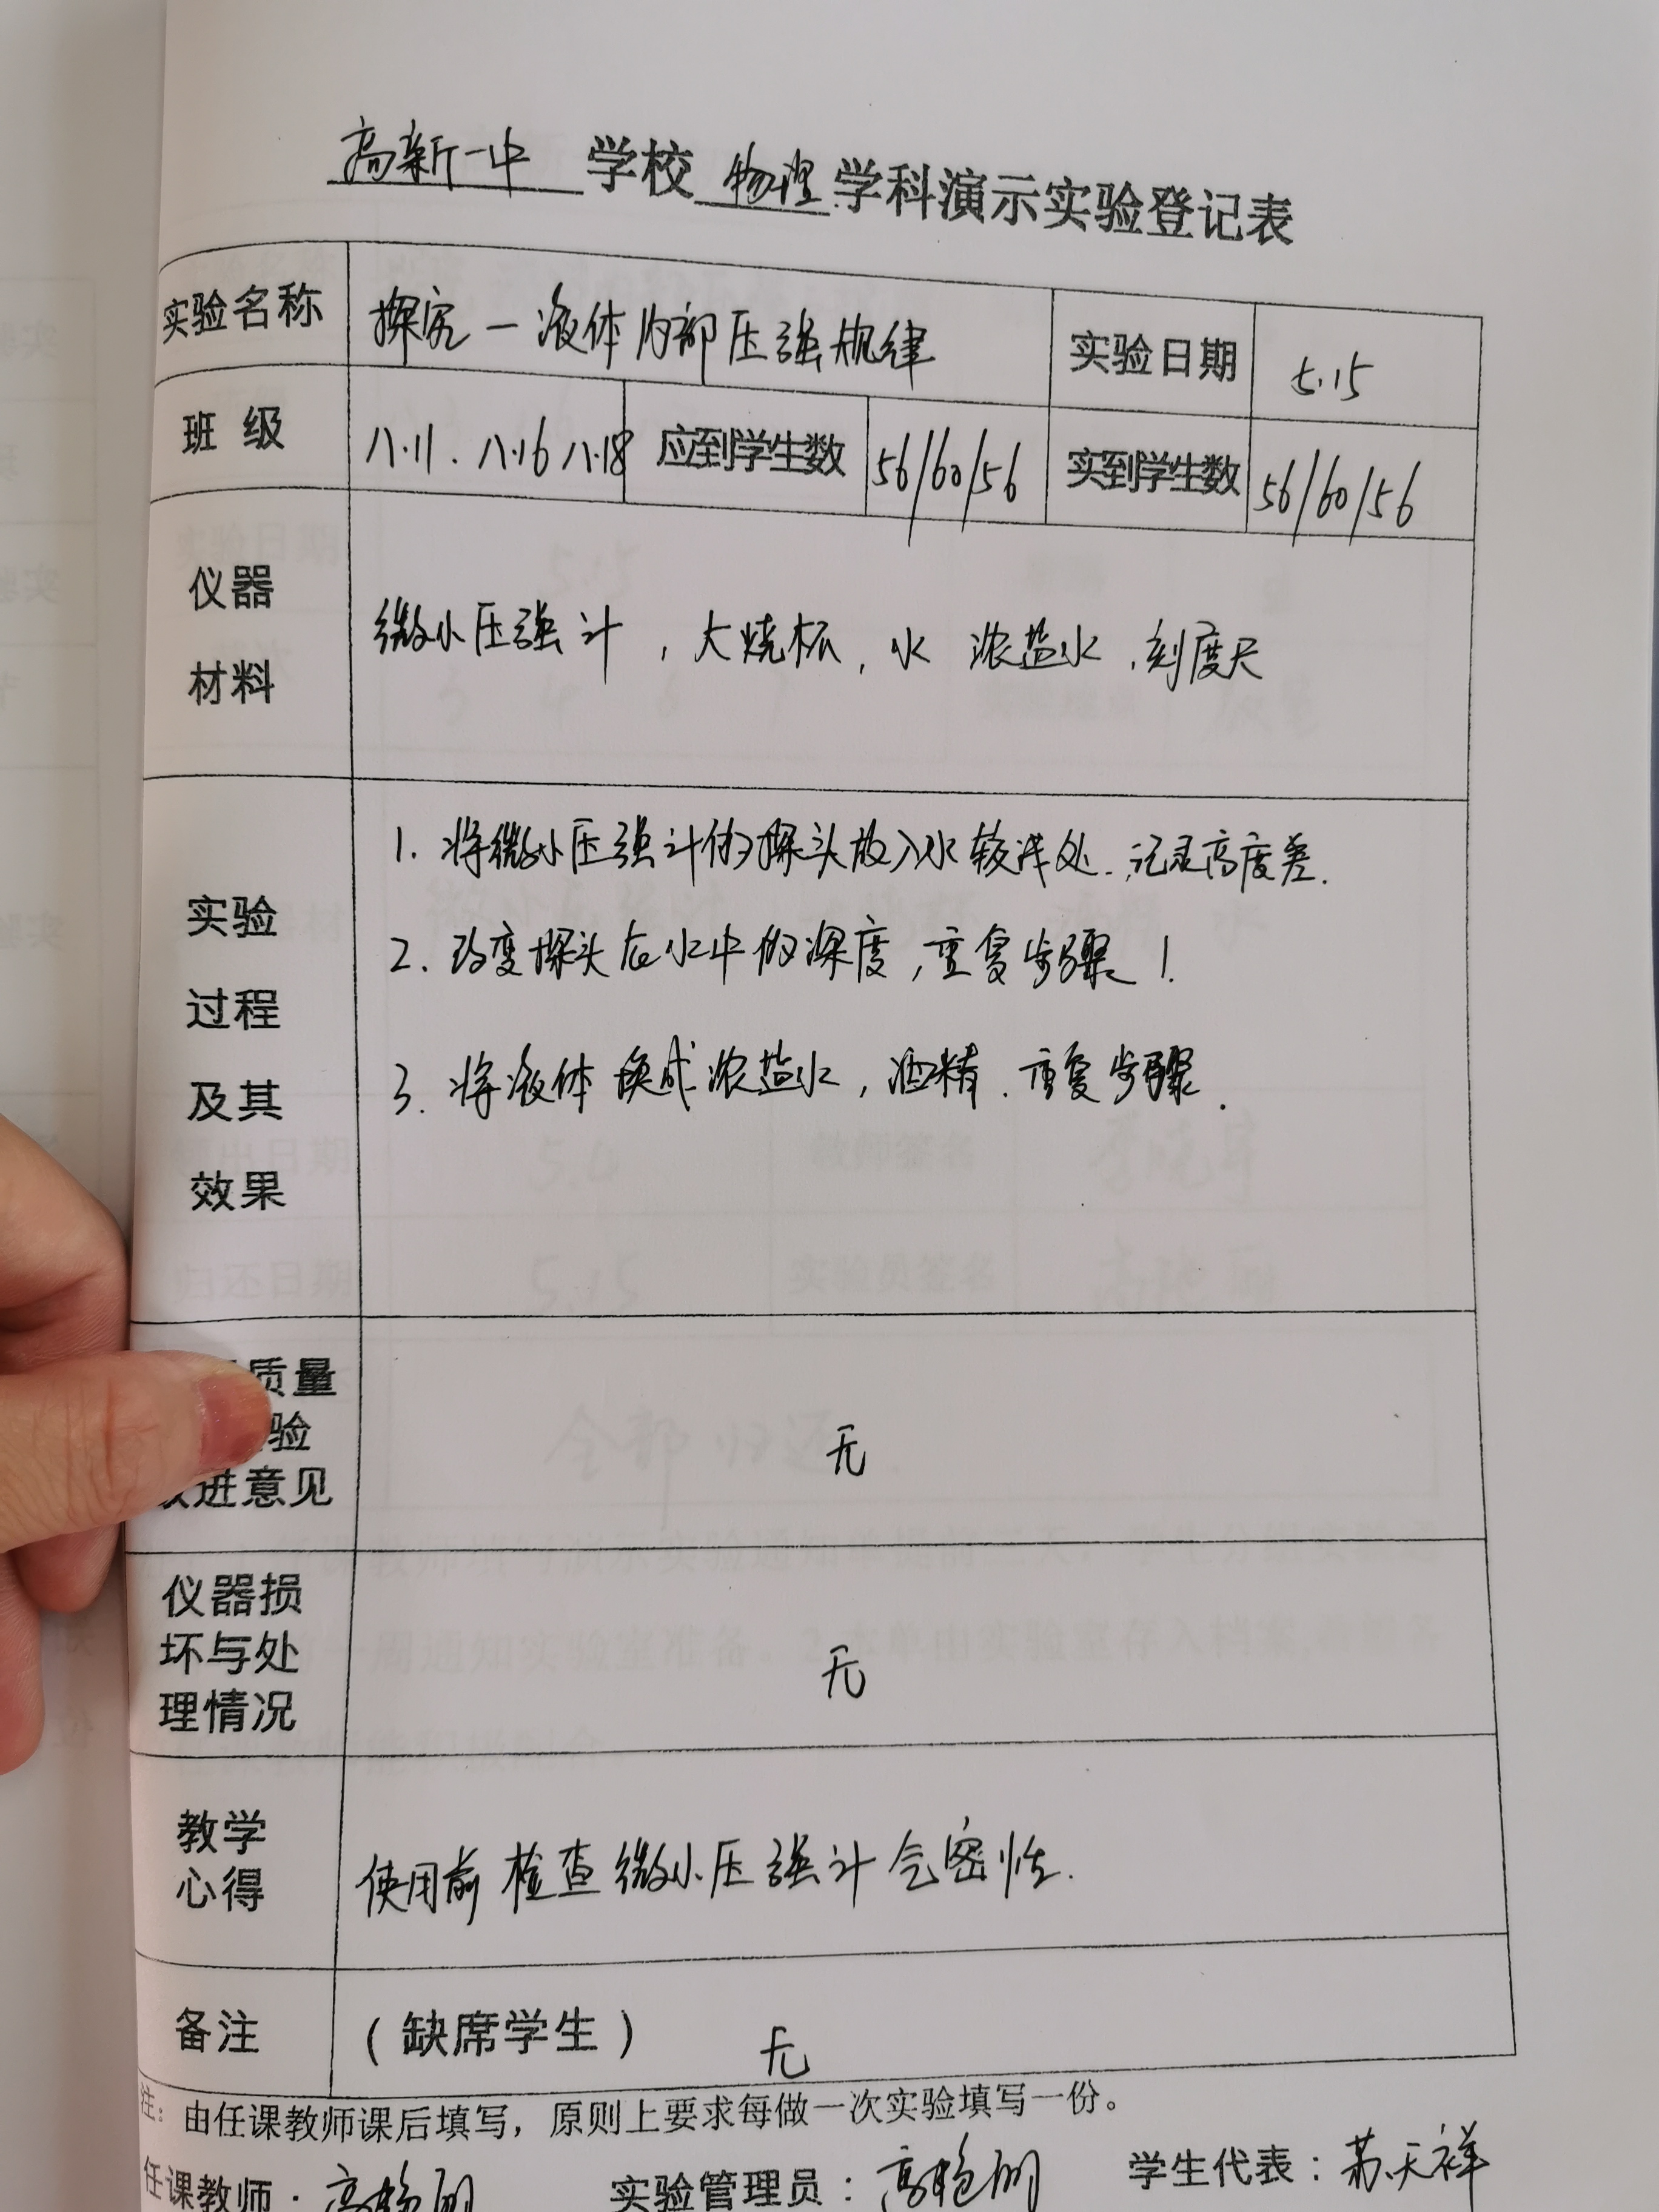 高新一中 学校 物理 学科演示实验登记表
实验名称 探究一液体内部压强规律 实验日期 5.15
班 级 八.11. 八.16 八.18 应到学生数 56/60/56 实到学生数 56/60/56
仪器
材料
微小压强计，大烧杯，水 浓盐水，刻度尺
实验
过程
及其
效果
1. 将微小压强计的探头放入水较浅处.记录高度差.
2. 改变探头在水中的深度，重复步骤1.
3. 将液体换成浓盐水，酒精.重复步骤.
质量
验
改进意见
无
仪器损
坏与处
理情况
无
教学
心得
使用前检查微小压强计气密性.
备注 （缺席学生） 无
注：由任课教师课后填写，原则上要求每做一次实验填写一份。
任课教师： 高艳 实验管理员：高艳 学生代表：苏天祥